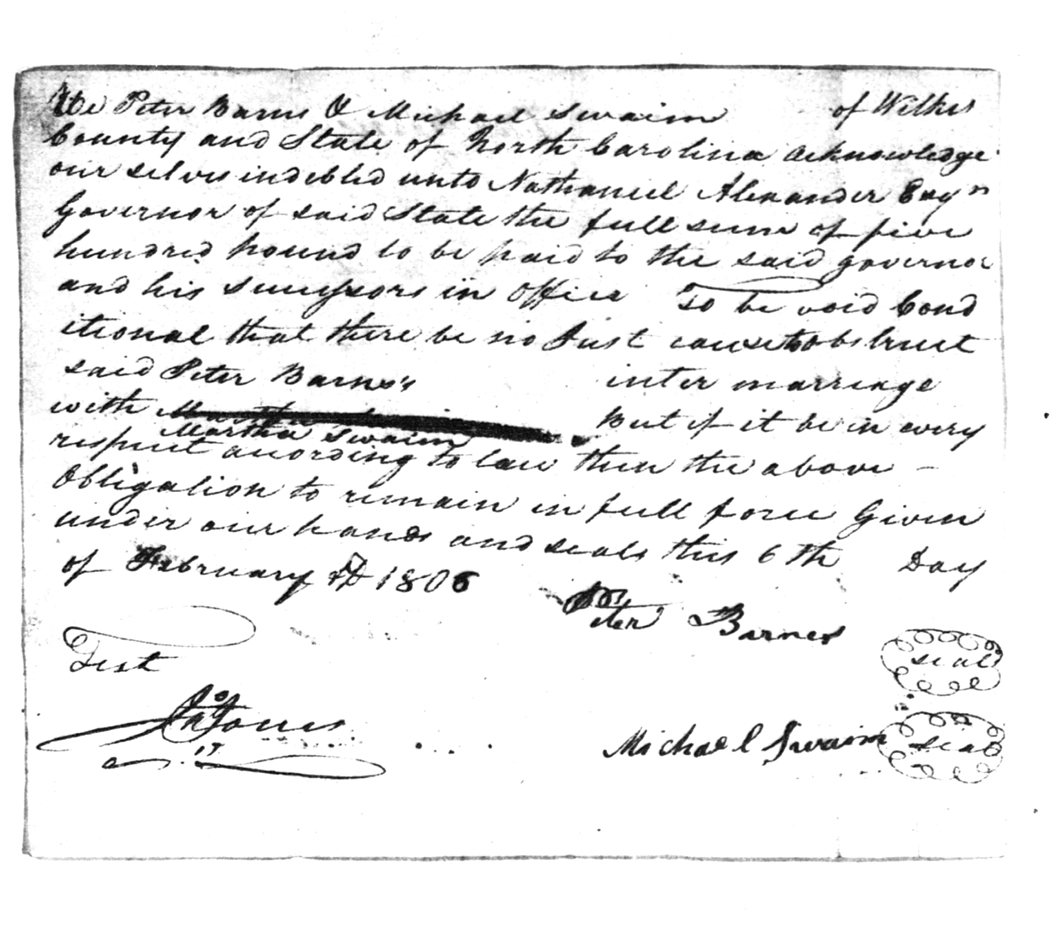 We Peter Barns & Michael Swaim of Wilkes
County and State of North Carolina acknowledge
our selves indebted unto Nathaniel Alexander Esqr
Governor of said State the full sum of five
hundred pound to be paid to the said governor
and his sucessors in Office To be void Cond
itional that there be no Just cause to obstruct
said Peter Barns's inter marriage
with But if it be in every
Martha Swaim
respect acording to law then the above –
Obligation to remain in full force Given
under our hands and seals this 6th Day
of February AD 1806
Peter Barnes
seal
Test
Jno Jones
Michael Swaim seal